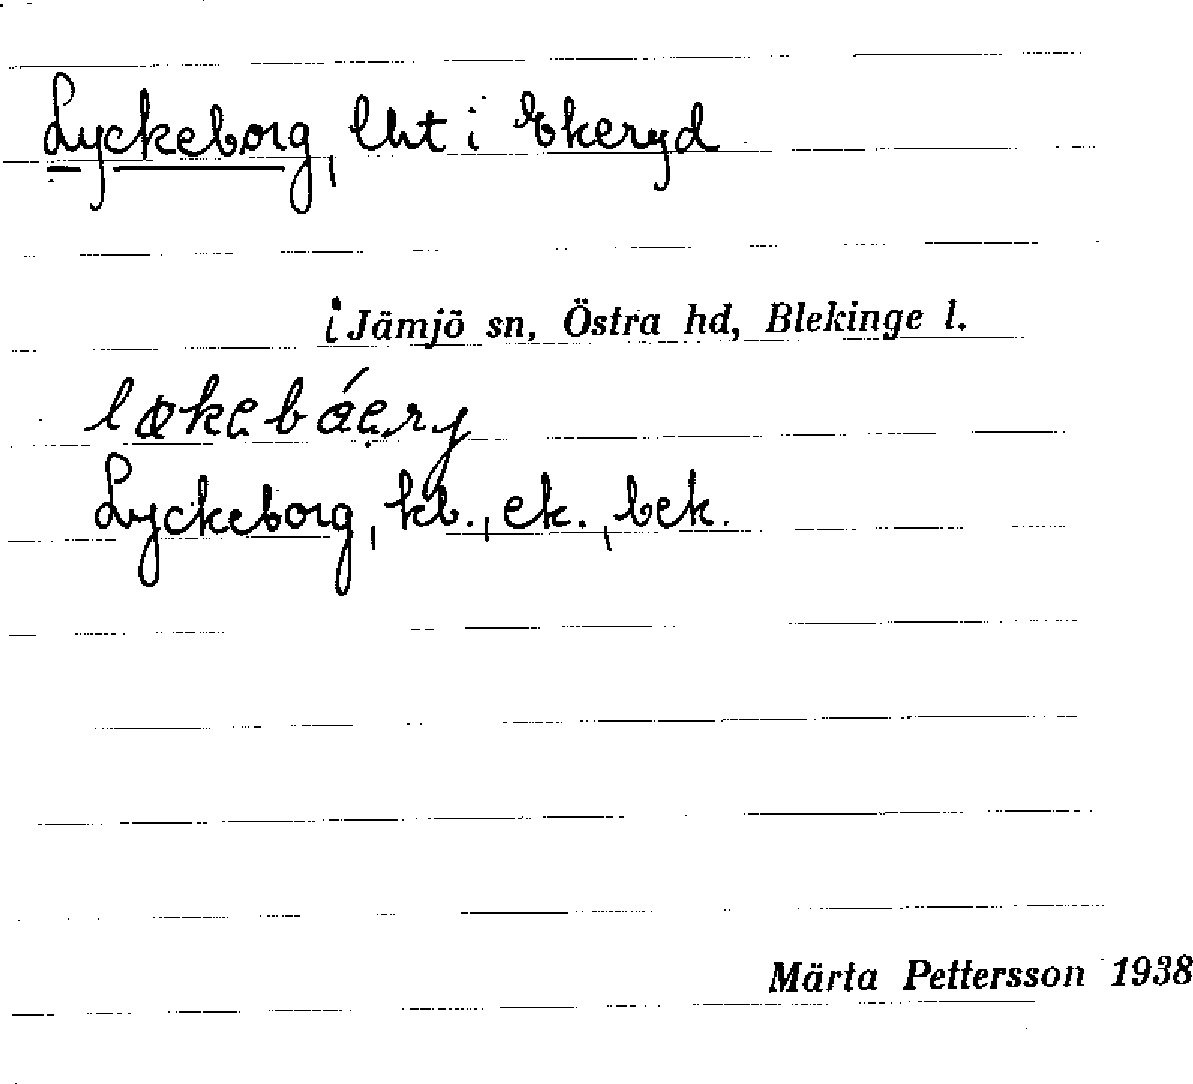 Lyckeborg, lht i Ekeryd
i Jämjö sn, Östra hd, Blekinge l.
Lyckeborg, kb., ek., bek.
Märta Pettersson 1938